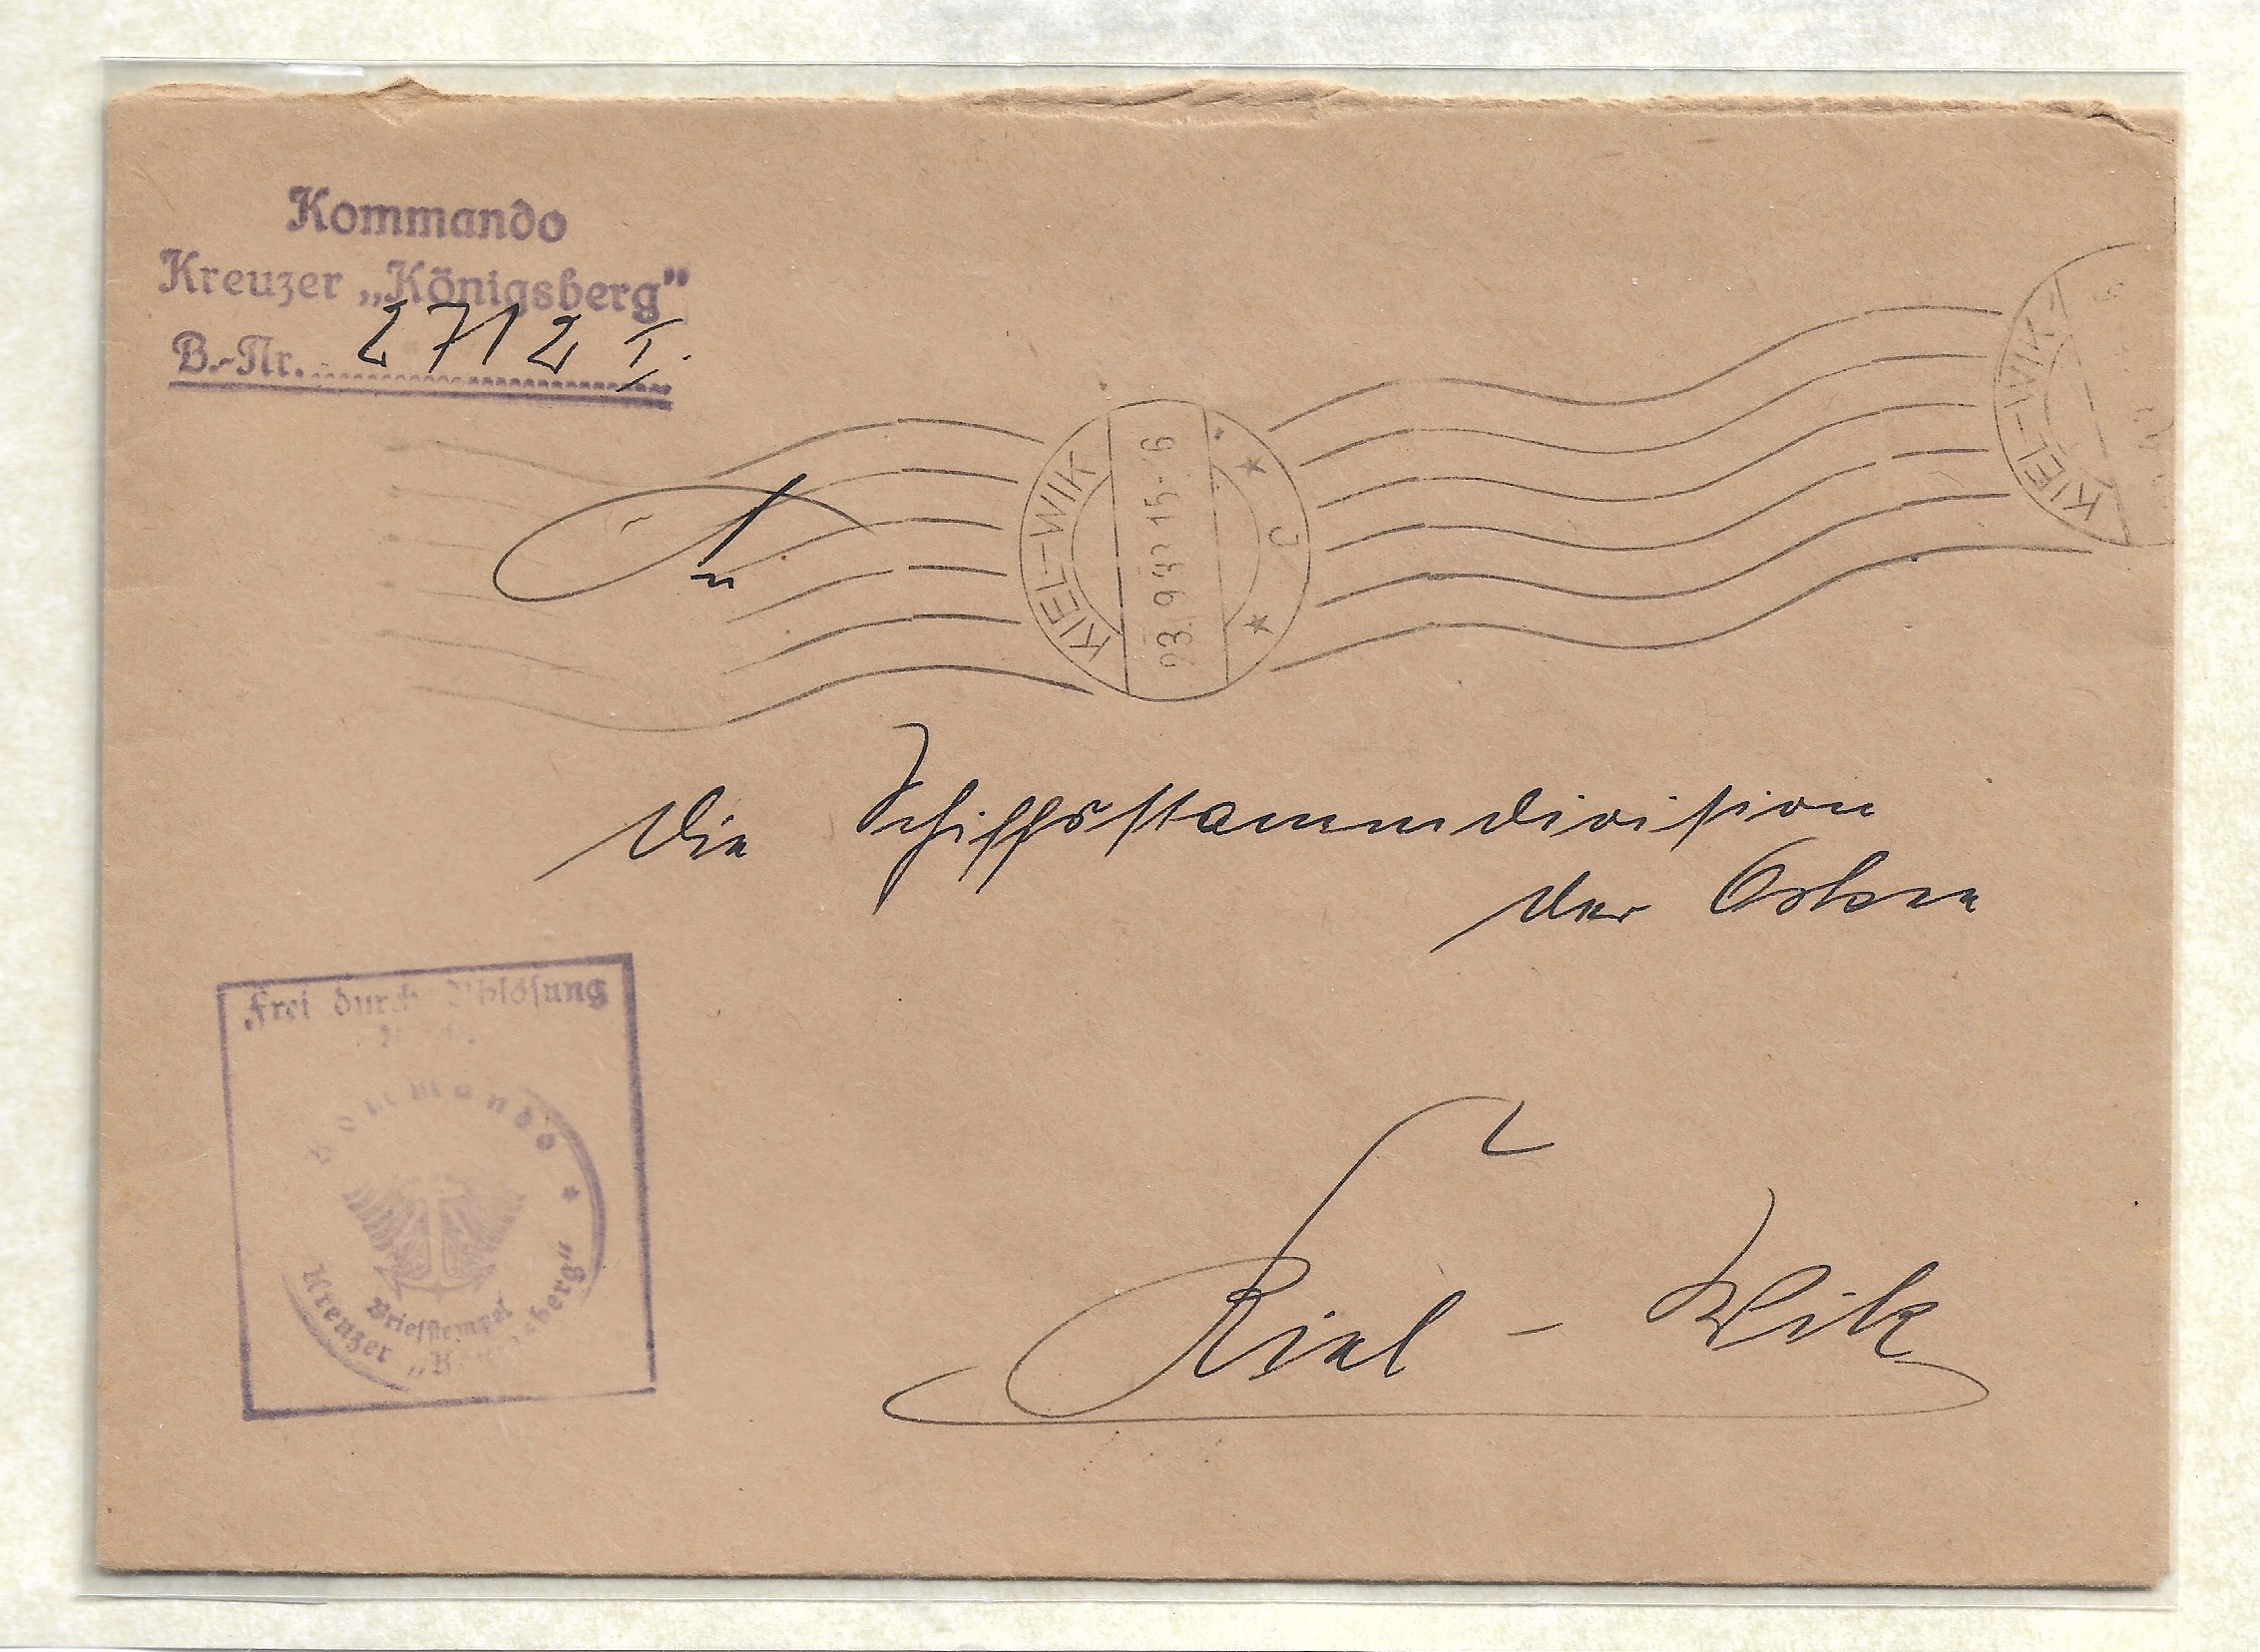 Kommando
Kreuzer „Königsberg“
B.-Nr. 2712 I.
An
KIEL-WIK
23. 9. 15-16
* C *
KIEL-WIK
die Schiffsstammdivision
der Ostsee
Frei durch Ablösung
Kommando *
Briefstempel
Kreuzer „Königsberg“
Kiel - Wik